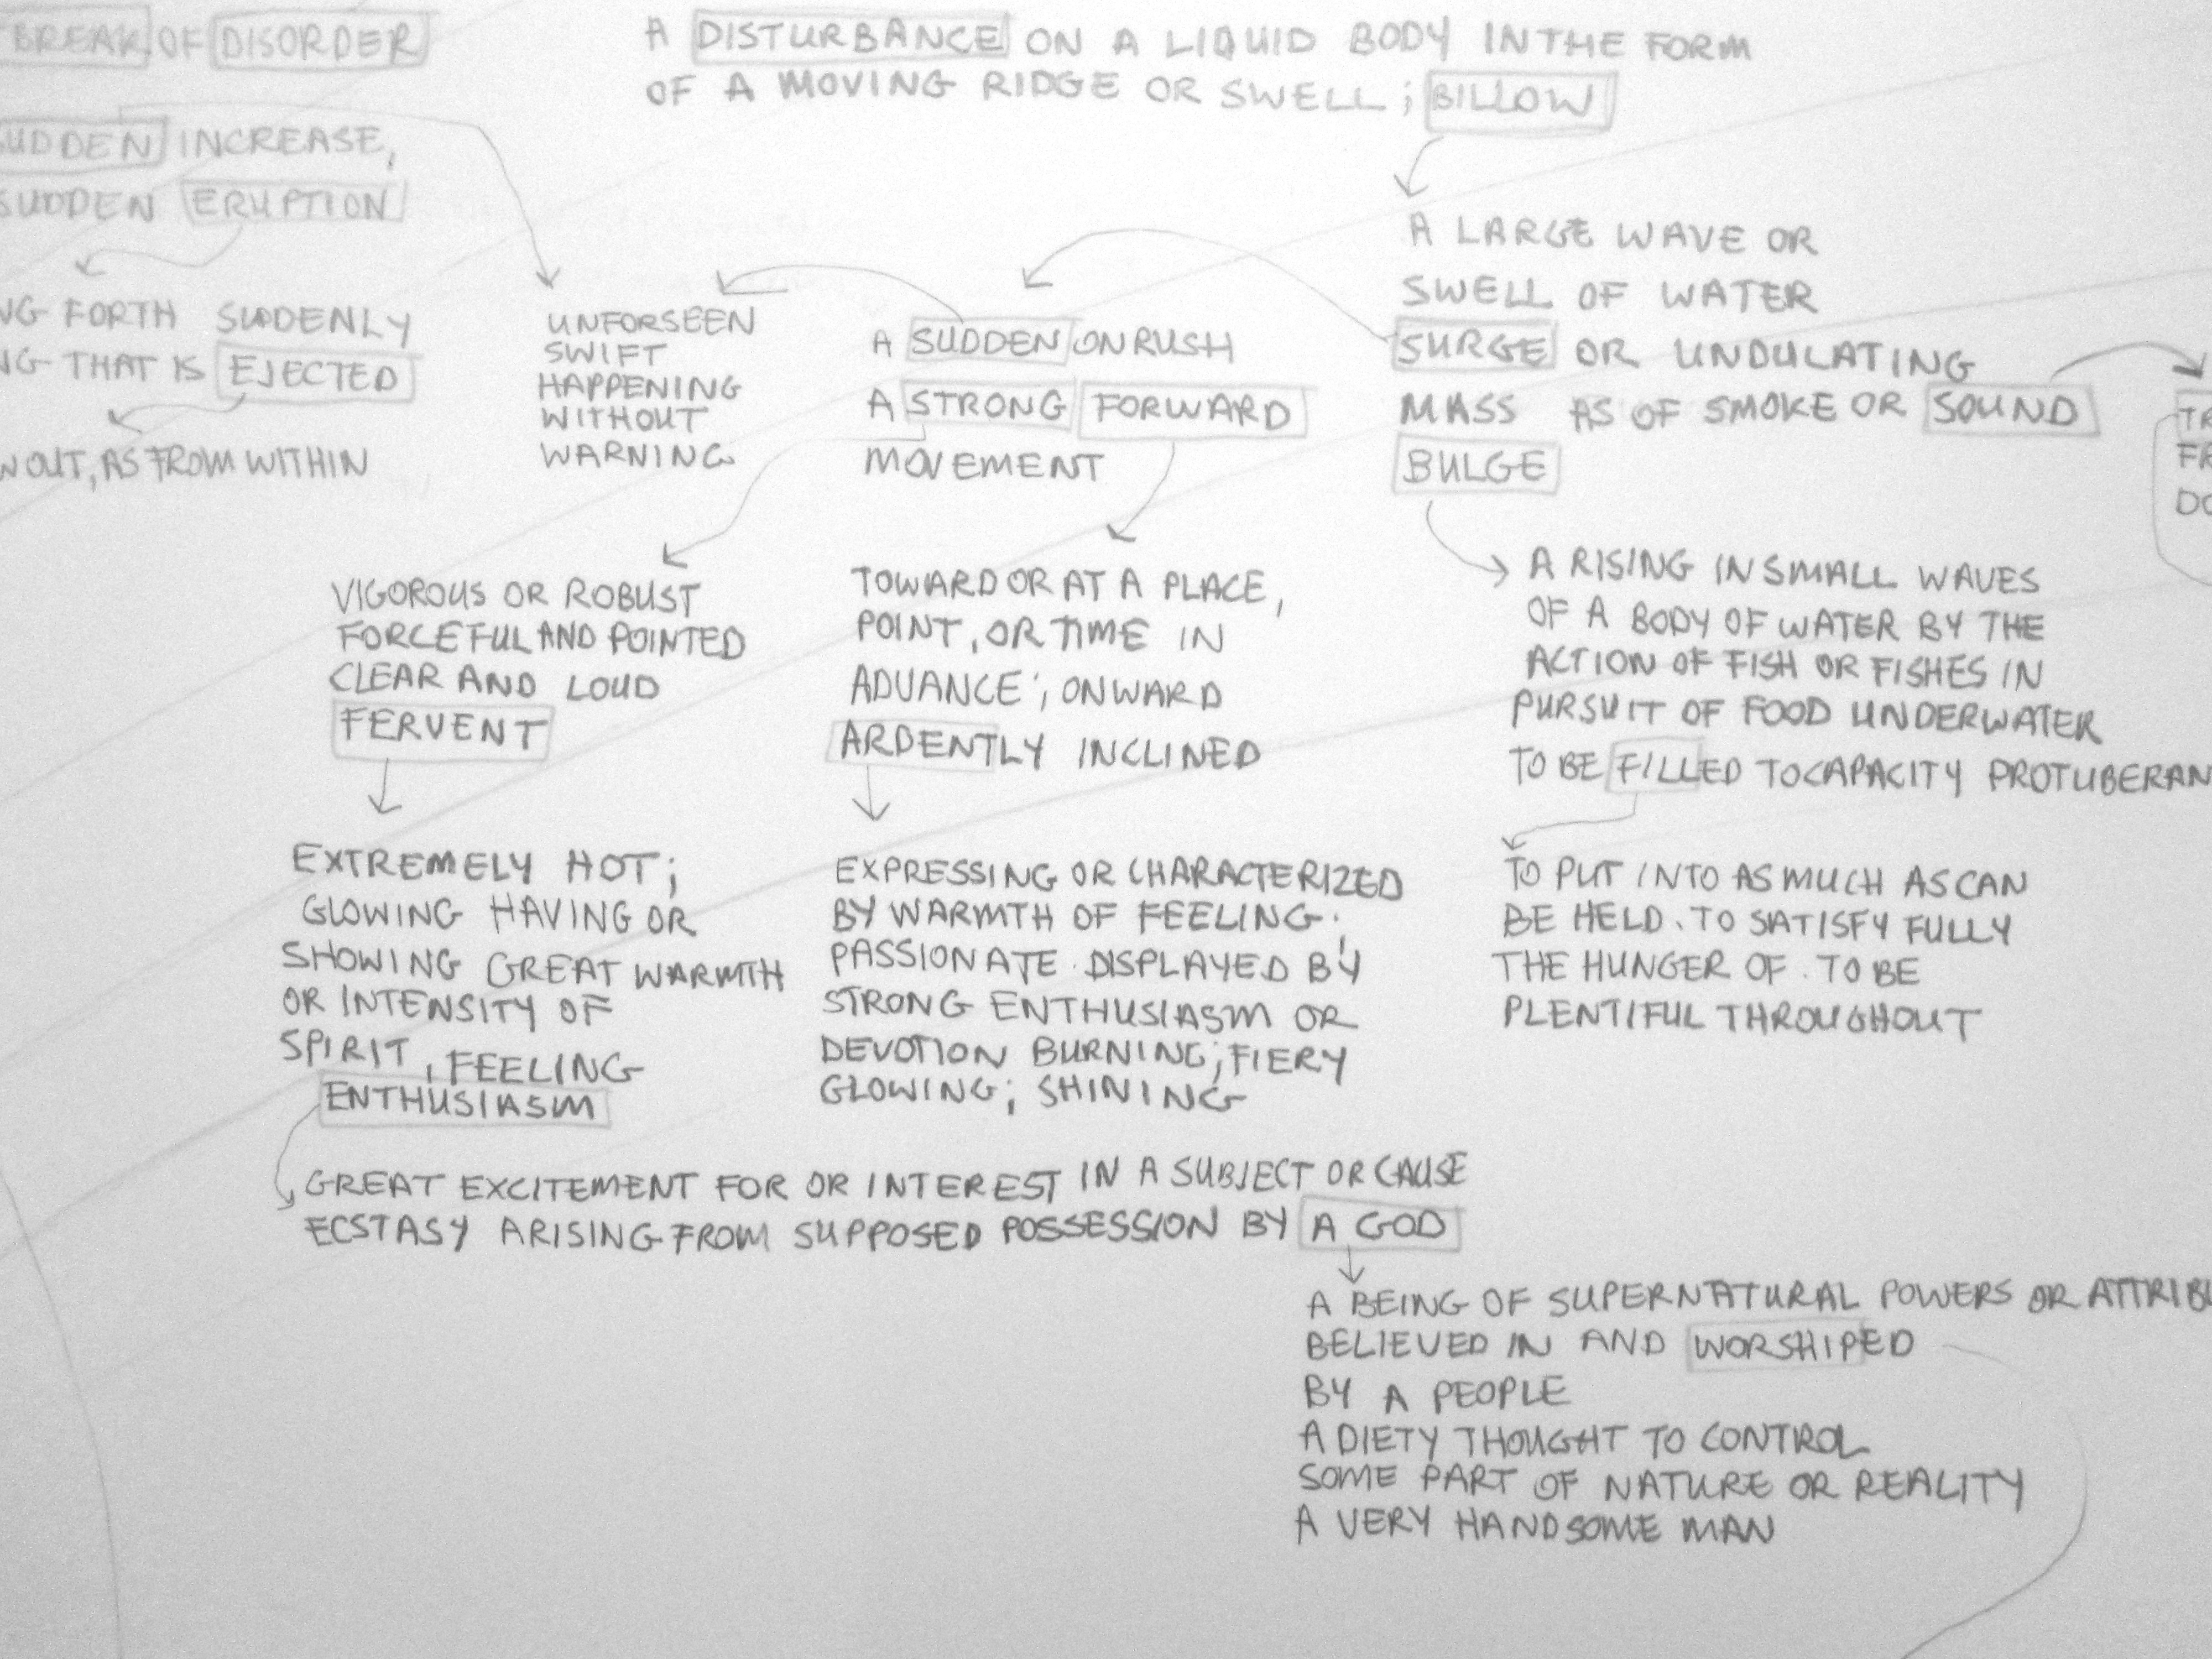 BREAK OF DISORDER
SUDDEN INCREASE,
SUDDEN ERUPTION
FORTH SUDDENLY
THAT IS EJECTED
OUT, AS FROM WITHIN
A DISTURBANCE ON A LIQUID BODY IN THE FORM
OF A MOVING RIDGE OR SWELL; BILLOW
UNFORSEEN
SWIFT
HAPPENING
WITHOUT
WARNING
A SUDDEN ONRUSH
A STRONG FORWARD
MOVEMENT
A LARGE WAVE OR
SWELL OF WATER
SURGE OR UNDULATING
MASS AS OF SMOKE OR SOUND
BULGE
TR
FR
DO
VIGOROUS OR ROBUST
FORCEFUL AND POINTED
CLEAR AND LOUD
FERVENT
TOWARD OR AT A PLACE,
POINT, OR TIME IN
ADVANCE; ONWARD
ARDENTLY INCLINED
A RISING IN SMALL WAVES
OF A BODY OF WATER BY THE
ACTION OF FISH OR FISHES IN
PURSUIT OF FOOD UNDERWATER
TO BE FILLED TO CAPACITY PROTUBERAN
EXTREMELY HOT;
GLOWING HAVING OR
SHOWING GREAT WARMTH
OR INTENSITY OF
SPIRIT, FEELING
ENTHUSIASM
EXPRESSING OR CHARACTERIZED
BY WARMTH OF FEELING;
PASSIONATE. DISPLAYED BY
STRONG ENTHUSIASM OR
DEVOTION BURNING; FIERY
GLOWING; SHINING
TO PUT INTO AS MUCH AS CAN
BE HELD. TO SATISFY FULLY
THE HUNGER OF. TO BE
PLENTIFUL THROUGHOUT
GREAT EXCITEMENT FOR OR INTEREST IN A SUBJECT OR CAUSE
ECSTASY ARISING FROM SUPPOSED POSSESSION BY A GOD
A BEING OF SUPERNATURAL POWERS OR ATTRIBU
BELIEVED IN AND WORSHIPED
BY A PEOPLE
A DIETY THOUGHT TO CONTROL
SOME PART OF NATURE OR REALITY
A VERY HANDSOME MAN